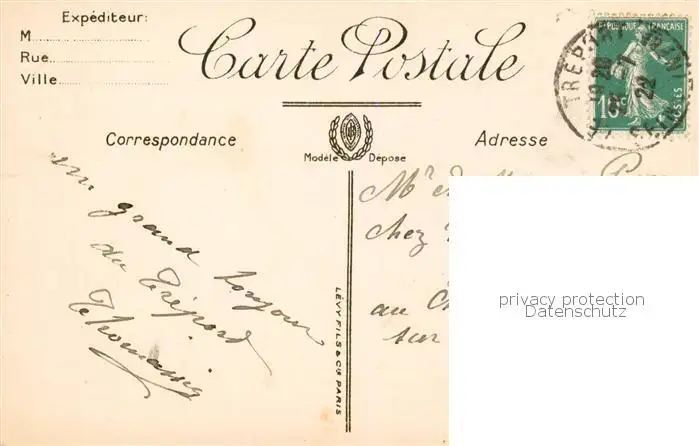 Expéditeur:
M
Rue
Ville
Carte Postale
RÉPUBLIQUE FRANÇAISE
10c
POSTES
TRÉPORT
22
Correspondance
Modèle Déposé
Adresse
un grand bonjour
du Tréport
Thomassin
Mr
chez
au
sur
LÉVY FILS & Cie PARIS
privacy protection
Datenschutz